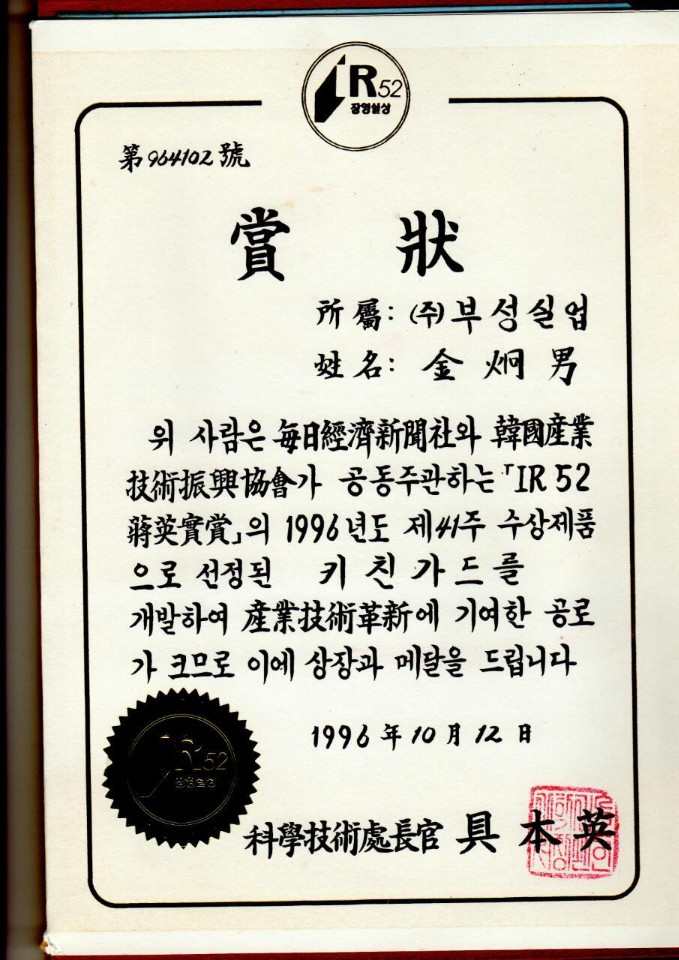 IR52
장영실상
第964102號
賞 狀
所屬: (주)부성실업
姓名: 金炯男
위 사람은 每日經濟新聞社와 韓國産業
技術振興協會가 공동주관하는 「IR 52
蔣英實賞」의 1996년도 제41주 수상제품
으로 선정된 키친가드를
개발하여 産業技術革新에 기여한 공로
가 크므로 이에 상장과 메달을 드립니다
1996年 10月 12日
IR52
장영실상
科學技術處長官 具本英